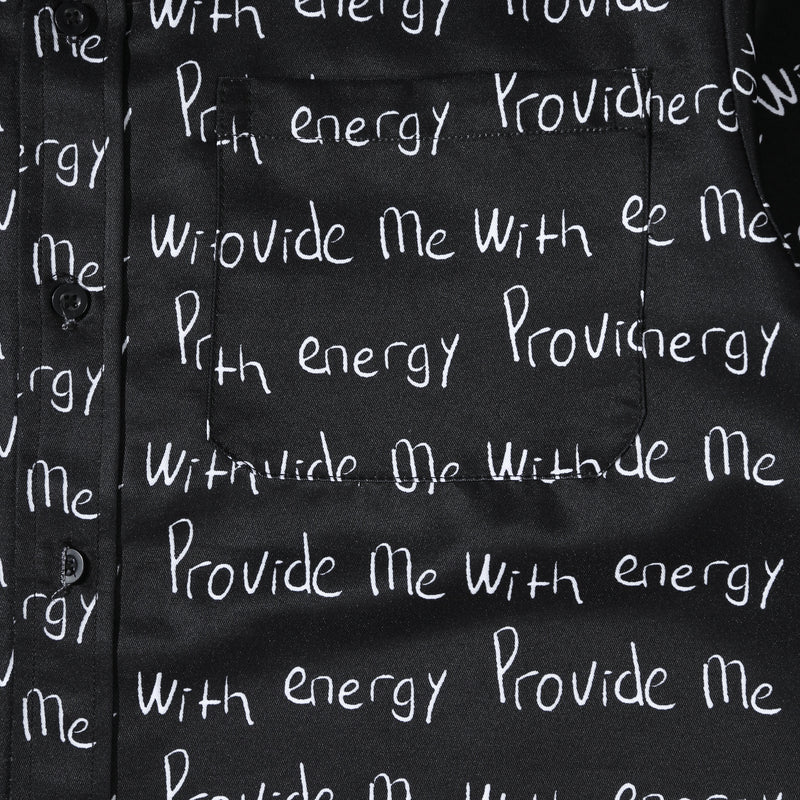 Me With energy Provide Me
Prth energy Providnergy
ergy
Wiovide Me With ee Me
Me
Prth energy Providnergy
rgy
Withvide Me Withde Me
Me
Provide Me With energy
rgy
With energy Provide Me
Me
Provide Me With energy